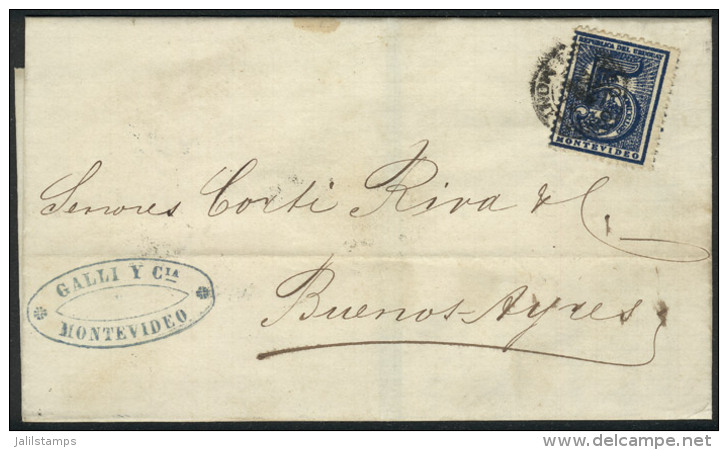 REPUBLICA DEL URUGUAY
5
MONTEVIDEO
Senores Corti Riva & C.
GALLI Y CIA
MONTEVIDEO
Buenos-Ayres
jalilstamps
www.delcampe.net